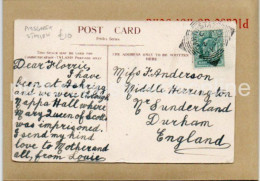 POST CARD
THE ADDRESS ONLY TO BE WRITTEN HERE
Dear Florrie
I have
been at Askrigg
and we went through
Nappa Hall where
Mary Queen of Scots
was imprisoned.
I send my kind
love to Mother and
all, from Louie
Miss F. Anderson
Middle Herrington
Nr Sunderland
Durham
England